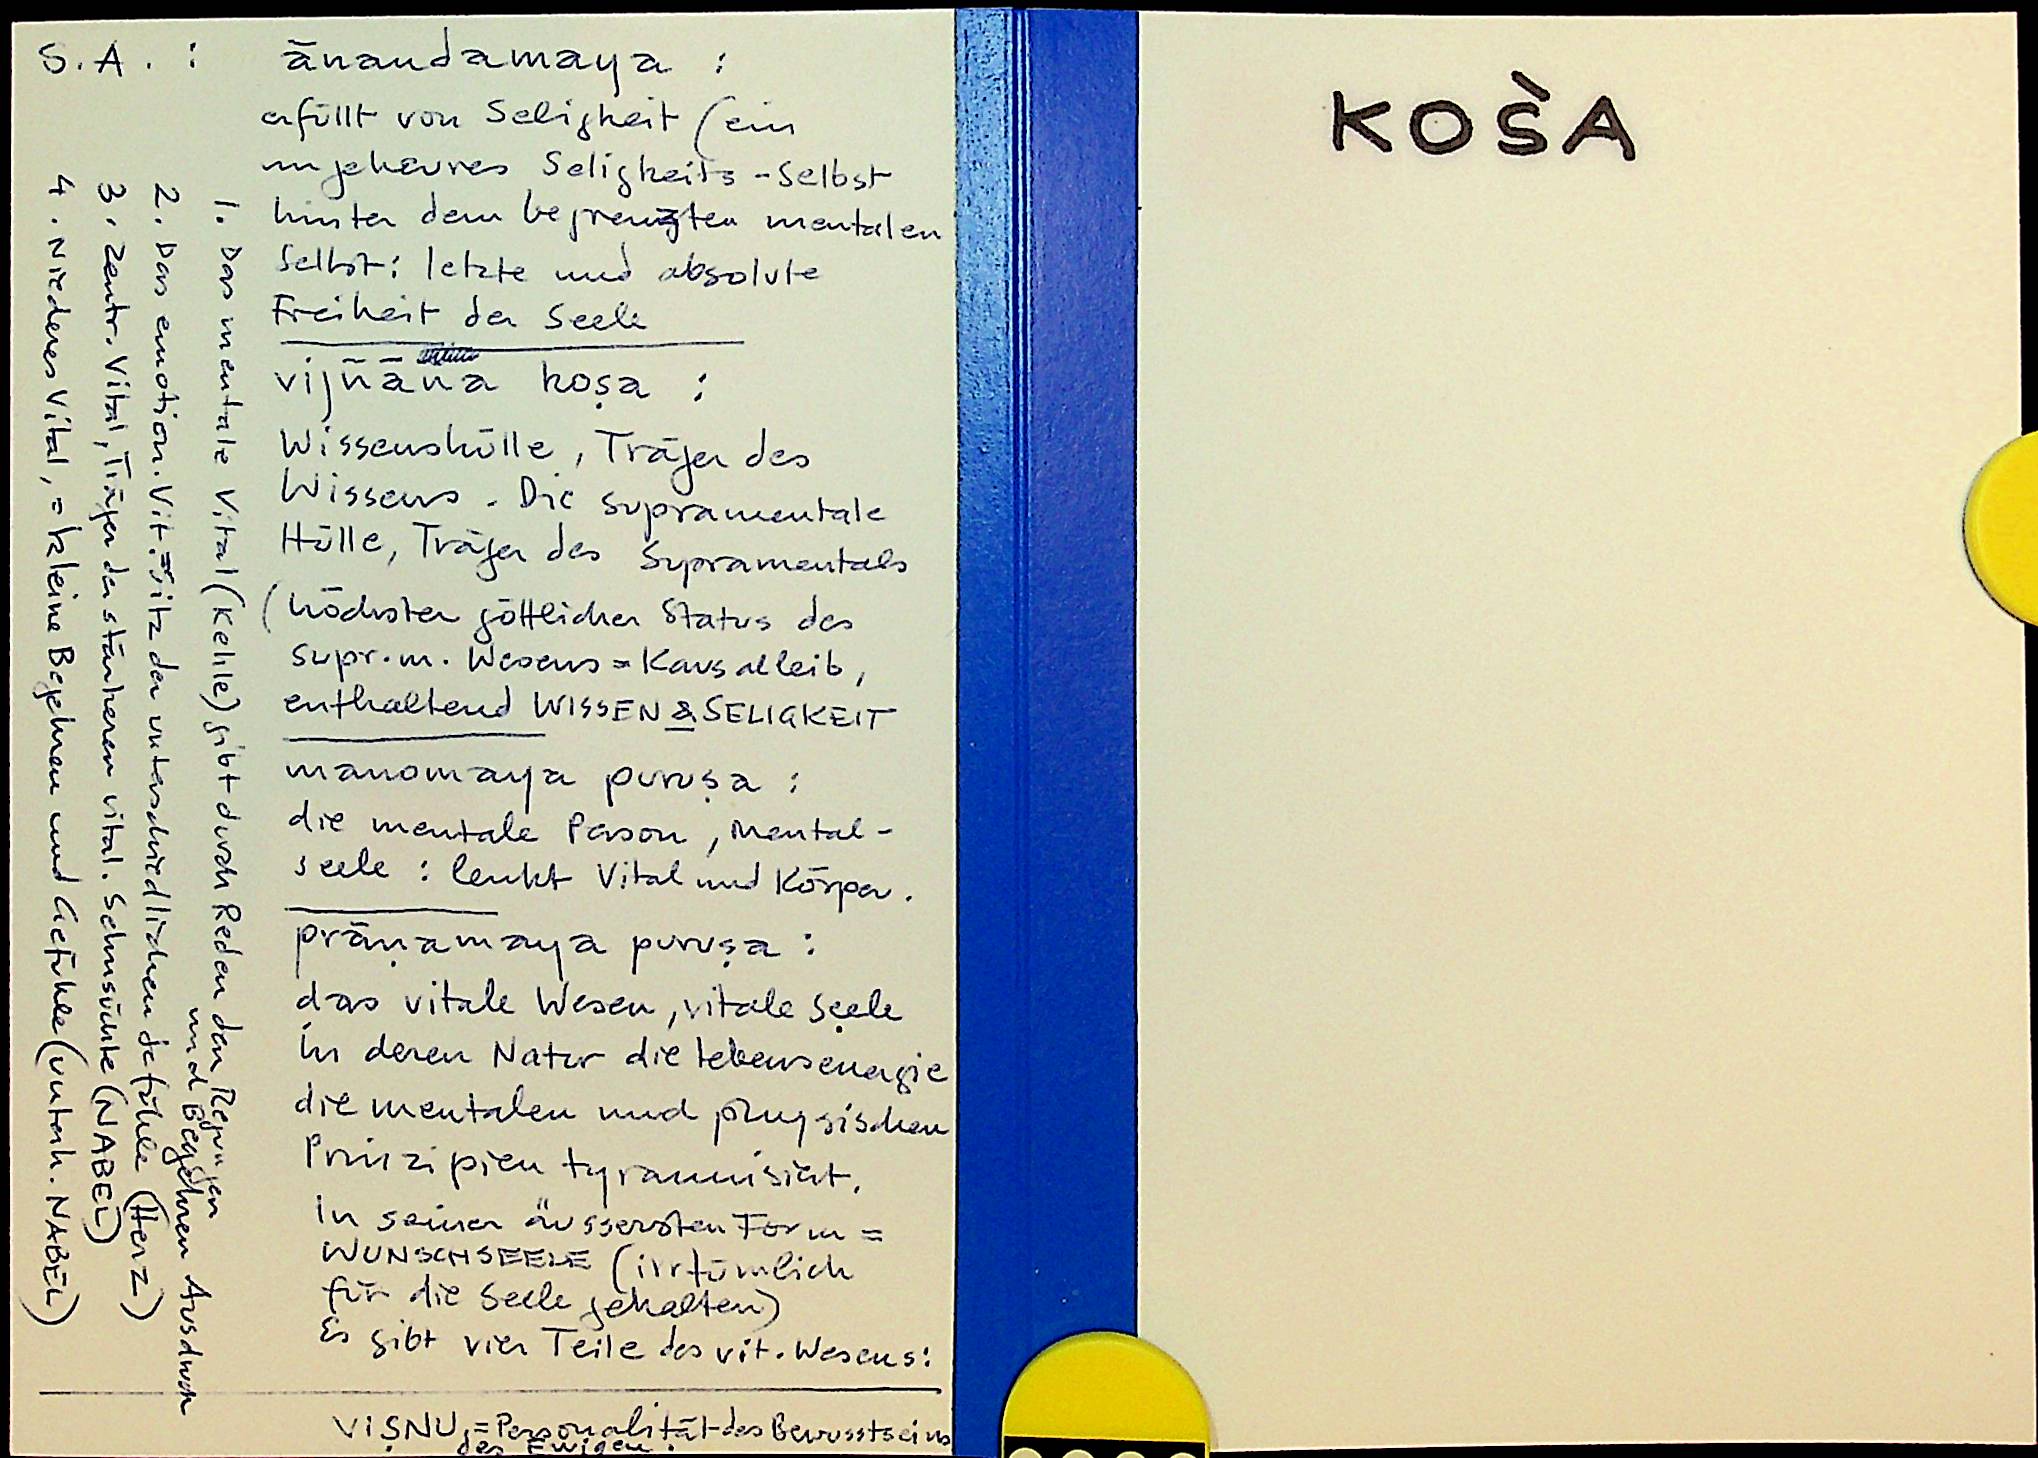 S.A.: ānandamaya:
erfüllt von Seligkeit (ein
ungeheures Seligkeits-Selbst
hinter dem begrenzten mentalen
Selbst: letzte und absolute
Freiheit der Seele
vijñāna koṣa:
Wissenshülle, Träger des
Wissens. Die supramentale
Hülle, Träger des Supramentals
(höchster göttlicher Status des
supr.m. Wesens = Kausalleib,
enthaltend WISSEN & SELIGKEIT
manomaya puruṣa:
die mentale Person, Mental-
seele: lenkt Vital und Körper.
prāṇamaya puruṣa:
das vitale Wesen, vitale Seele
in deren Natur die Lebensenergie
die mentalen und physischen
Prinzipien tyrannisiert.
In seiner äussersten Form =
WUNSCHSEELE (irrtümlich
für die Seele gehalten)
Es gibt vier Teile des vit. Wesens:
1. Das mentale Vital (Kehle) gibt durch Reden den Regungen
und Begehren Ausdruck
2. Das emotion. Vit. = Sitz der unterschiedlichen Gefühle (Herz)
3. Zentr. Vital, Träger der stärkeren vital. Sehnsüchte (NABEL)
4. Niederes Vital, = kleine Begehren und Gefühle (unterh. NABEL)
VIṢNU, = Personalität des Bewusstseins
des Ewigen.
KOṠÀ